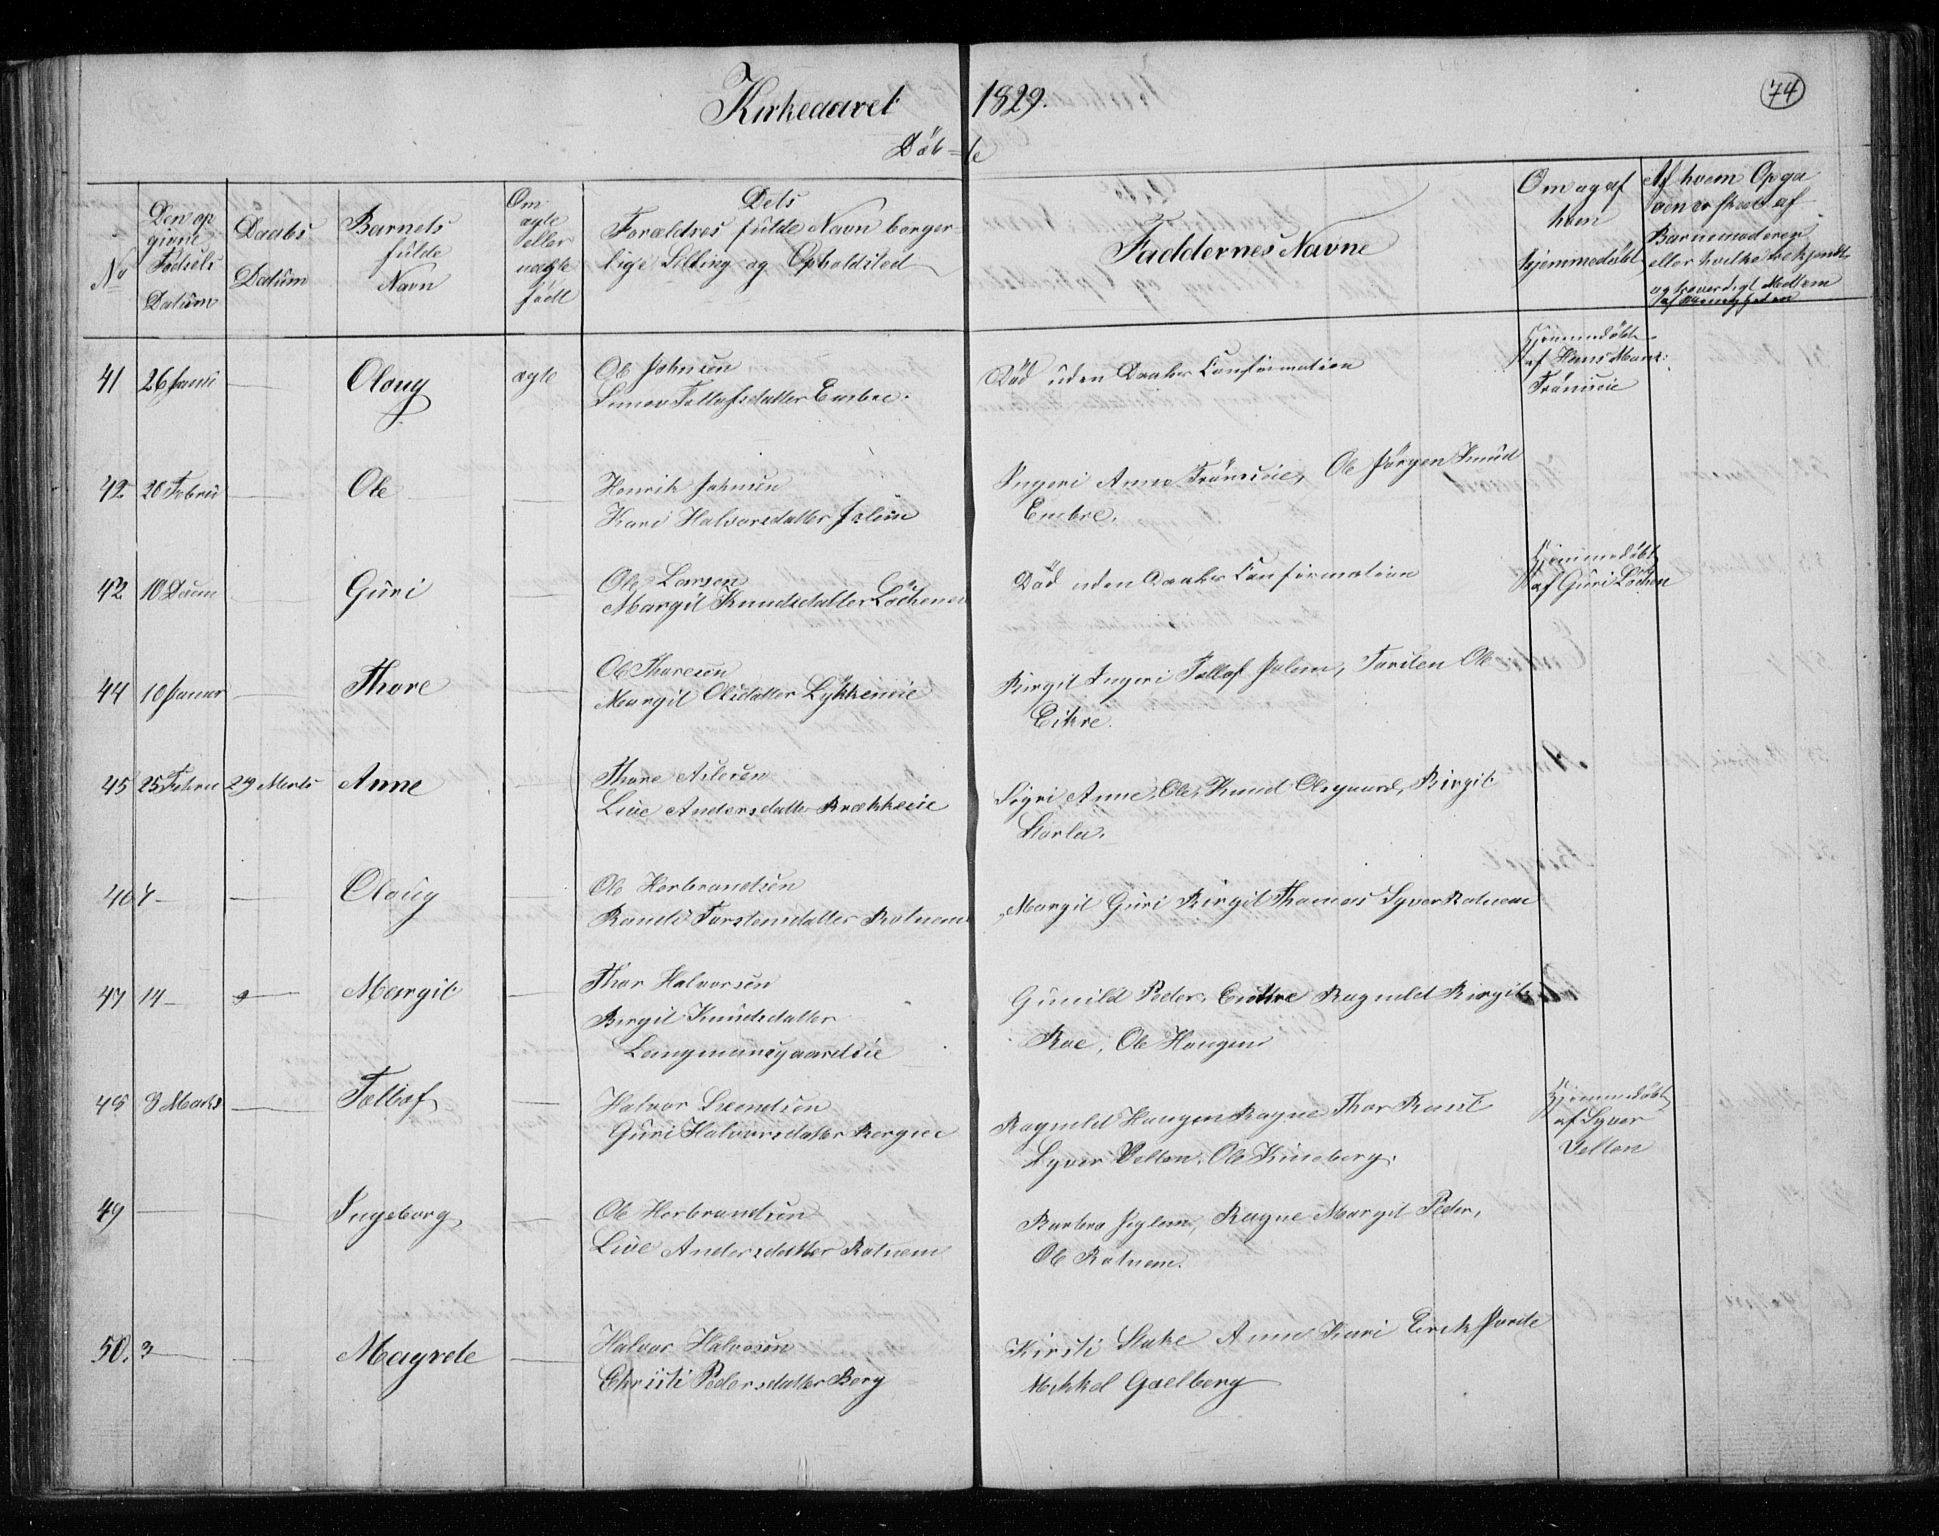 Kirkeaaret 1829.
74
Döb=te
No
Den op
givne
Födsels
Datum
Daabs
Datum
Barnets
fulde
Navn
Om
ægte
eller
uægte
födt
Dets
Forældres fulde Navn borger-
lige Stilling og Opholdsted
Faddernes Navne
Om og af
hvem
hjemmedöbt
Af hvem Opga
ven er skeet af
Barnemoderen
eller hvilke bekjendt
og troverdigt Medlem
af Menigheden
41 26 Janu — Oloug ægte Ole Johnsen
Tollefsdatter Embre.
Död uden Daabs Confirmation
Hjemmedöbt
af Hans
42 20 Febru — Ole — Henrik Johnsen
Kari Halvorsdatter
Ingeri Anne Ole Jörgen Knud
Embre.
42 10 Decem — Guri — Ole Larsen
Margit Knudsdatter Löchenei
Död uden Daabs Confirmation
Hjemmedöbt
af Guri Löchen
44 10 Januar — Thore — Ole Thoresen
Margit Olsdatter Lykkeneie
Birgit Ingeri Tollef Torsten Ole
Eikre.
45 25 Febru 29 Marts Anne — Thore Aslesen
Live Andersdatter Brækkeeie
Sigri Anne, Ole, Knud Olsgaard, Birgit
Storla.
46 4 — — Oloug — Ole Herbrandsen
Randi Torstensdatter Rotnem
Margit Guri Birgit Thomas Syver Rotnem
47 14 — — Margit — Thor Halvorsen
Birgit Knudsdatter
Langmansgaardeie
Gunild Peder, Embre Ragnild Birgit
Roe, Ole Haugen
48 9 Marts — Tollef — Halvor
Guri Halvorsdatter Bergeie
Ragnild Haugen Ragne Thor
Syver Velten, Ole Kineberg.
Hjemmedöbt
af Syver
Velten
49 — — Ingeborg — Ole Herbrandsen
Live Andersdatter Rotnem
Barbro Ragne Margit Peder,
Ole Rotnem.
50. 3 — — Magrete — Halvor Halvosen
Christi Pedersdatter Berg
Kirsti Stake Anne Kari Erik Jorde
Mikkel Golberg